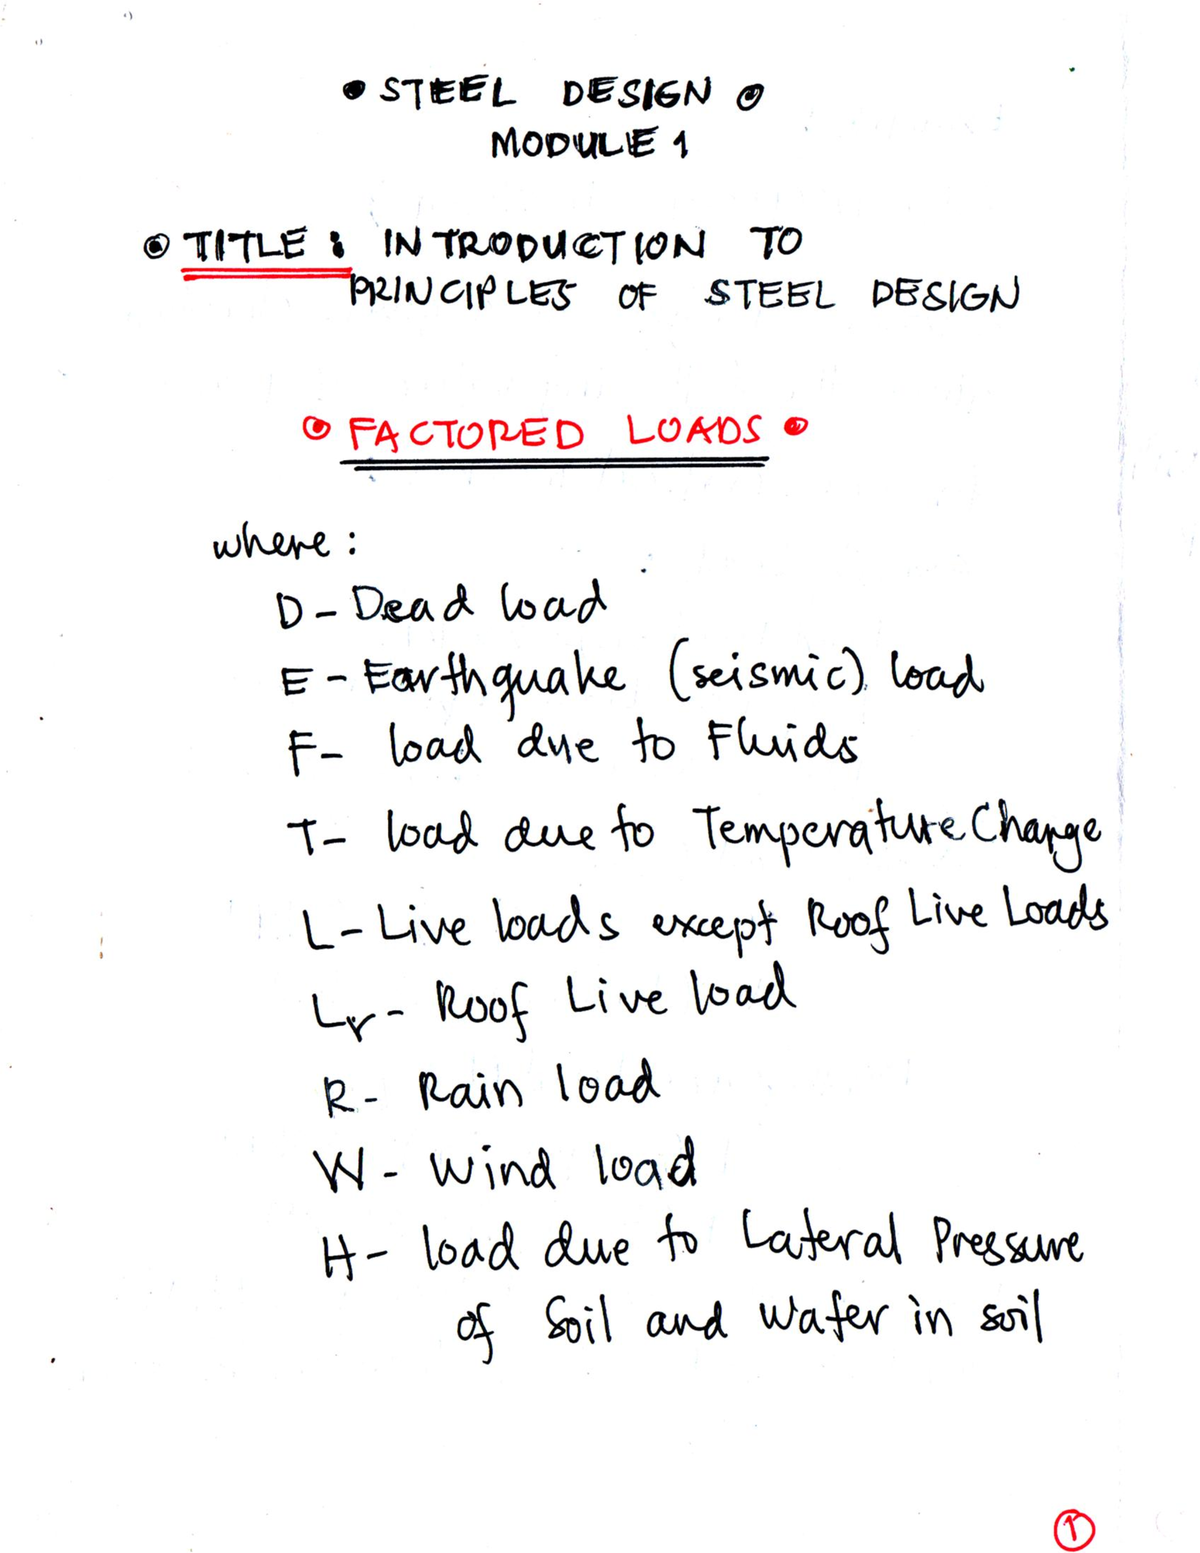 STEEL DESIGN
MODULE 1
TITLE: INTRODUCTION TO
PRINCIPLES OF STEEL DESIGN
FACTORED LOADS
where:
D- Dead load
E- Earthquake (seismic) load
F- load due to Fluids
T- load due to Temperature Change
L- Live loads except Roof Live Loads
Lr- Roof Live load
R- Rain load
W- Wind load
H- load due to Lateral Pressure
of Soil and Water in soil
1